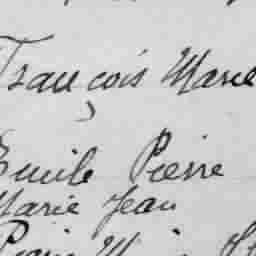 François Marie
Emile Pierre
Marie Jean